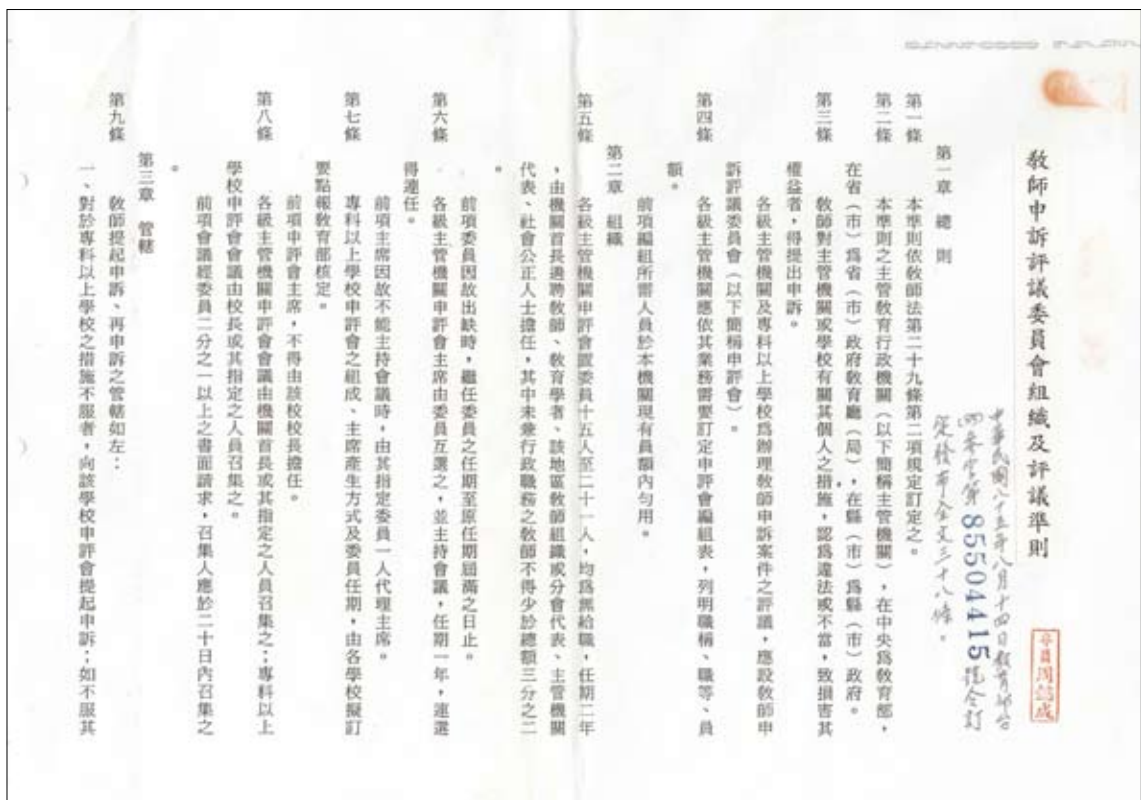 教師申訴評議委員會組織及評議準則
中華民國八十五年八月十四日教育部台
(85)參字第 85504415 號令訂
定發布全文三十八條。
專員周懿成
第一章 總 則
第一條 本準則依教師法第二十九條第二項規定訂定之。
第二條 本準則之主管教育行政機關（以下簡稱主管機關），在中央為教育部，
在省（市）為省（市）政府教育廳（局），在縣（市）為縣（市）政府。
第三條 教師對主管機關或學校有關其個人之措施，認為違法或不當，致損害其
權益者，得提出申訴。
各級主管機關及專科以上學校為辦理教師申訴案件之評議，應設教師申
訴評議委員會（以下簡稱申評會）。
第四條 各級主管機關應依其業務需要訂定申評會編組表，列明職稱、職等、員
額。
前項編組所需人員於本機關現有員額內勻用。
第二章 組織
第五條 各級主管機關申評會置委員十五人至二十一人，均為無給職，任期二年
，由機關首長遴聘教師、教育學者、該地區教師組織或分會代表、主管機關
代表、社會公正人士擔任，其中未兼行政職務之教師不得少於總額三分之二
。
前項委員因故出缺時，繼任委員之任期至原任期屆滿之日止。
第六條 各級主管機關申評會主席由委員互選之，並主持會議，任期一年，連選
得連任。
前項主席因故不能主持會議時，由其指定委員一人代理主席。
第七條 專科以上學校申評會之組成、主席產生方式及委員任期，由各學校擬訂
要點報教育部核定。
前項申評會主席，不得由該校校長擔任。
第八條 各級主管機關申評會會議由機關首長或其指定之人員召集之；專科以上
學校申評會會議由校長或其指定之人員召集之。
前項會議經委員二分之一以上之書面請求，召集人應於二十日內召集之
。
第三章 管轄
第九條 教師提起申訴、再申訴之管轄如左：
一、對於專科以上學校之措施不服者，向該學校申評會提起申訴；如不服其